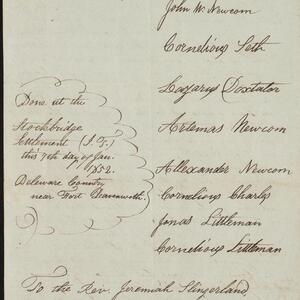 John W. Newcom
Cornelious Seth
Lazarus Doxtator
Done at the
Stockbridge
Settlement (I. T.)
this 7th day of Jan.
1852.
Deleware Country
near Fort Leavenworth.
Artemas Newcom
Allexander Newcom
Cornelious Charls
Jonas Littleman
Cornelious Littleman
To the Rev. Jeremiah Slingerland